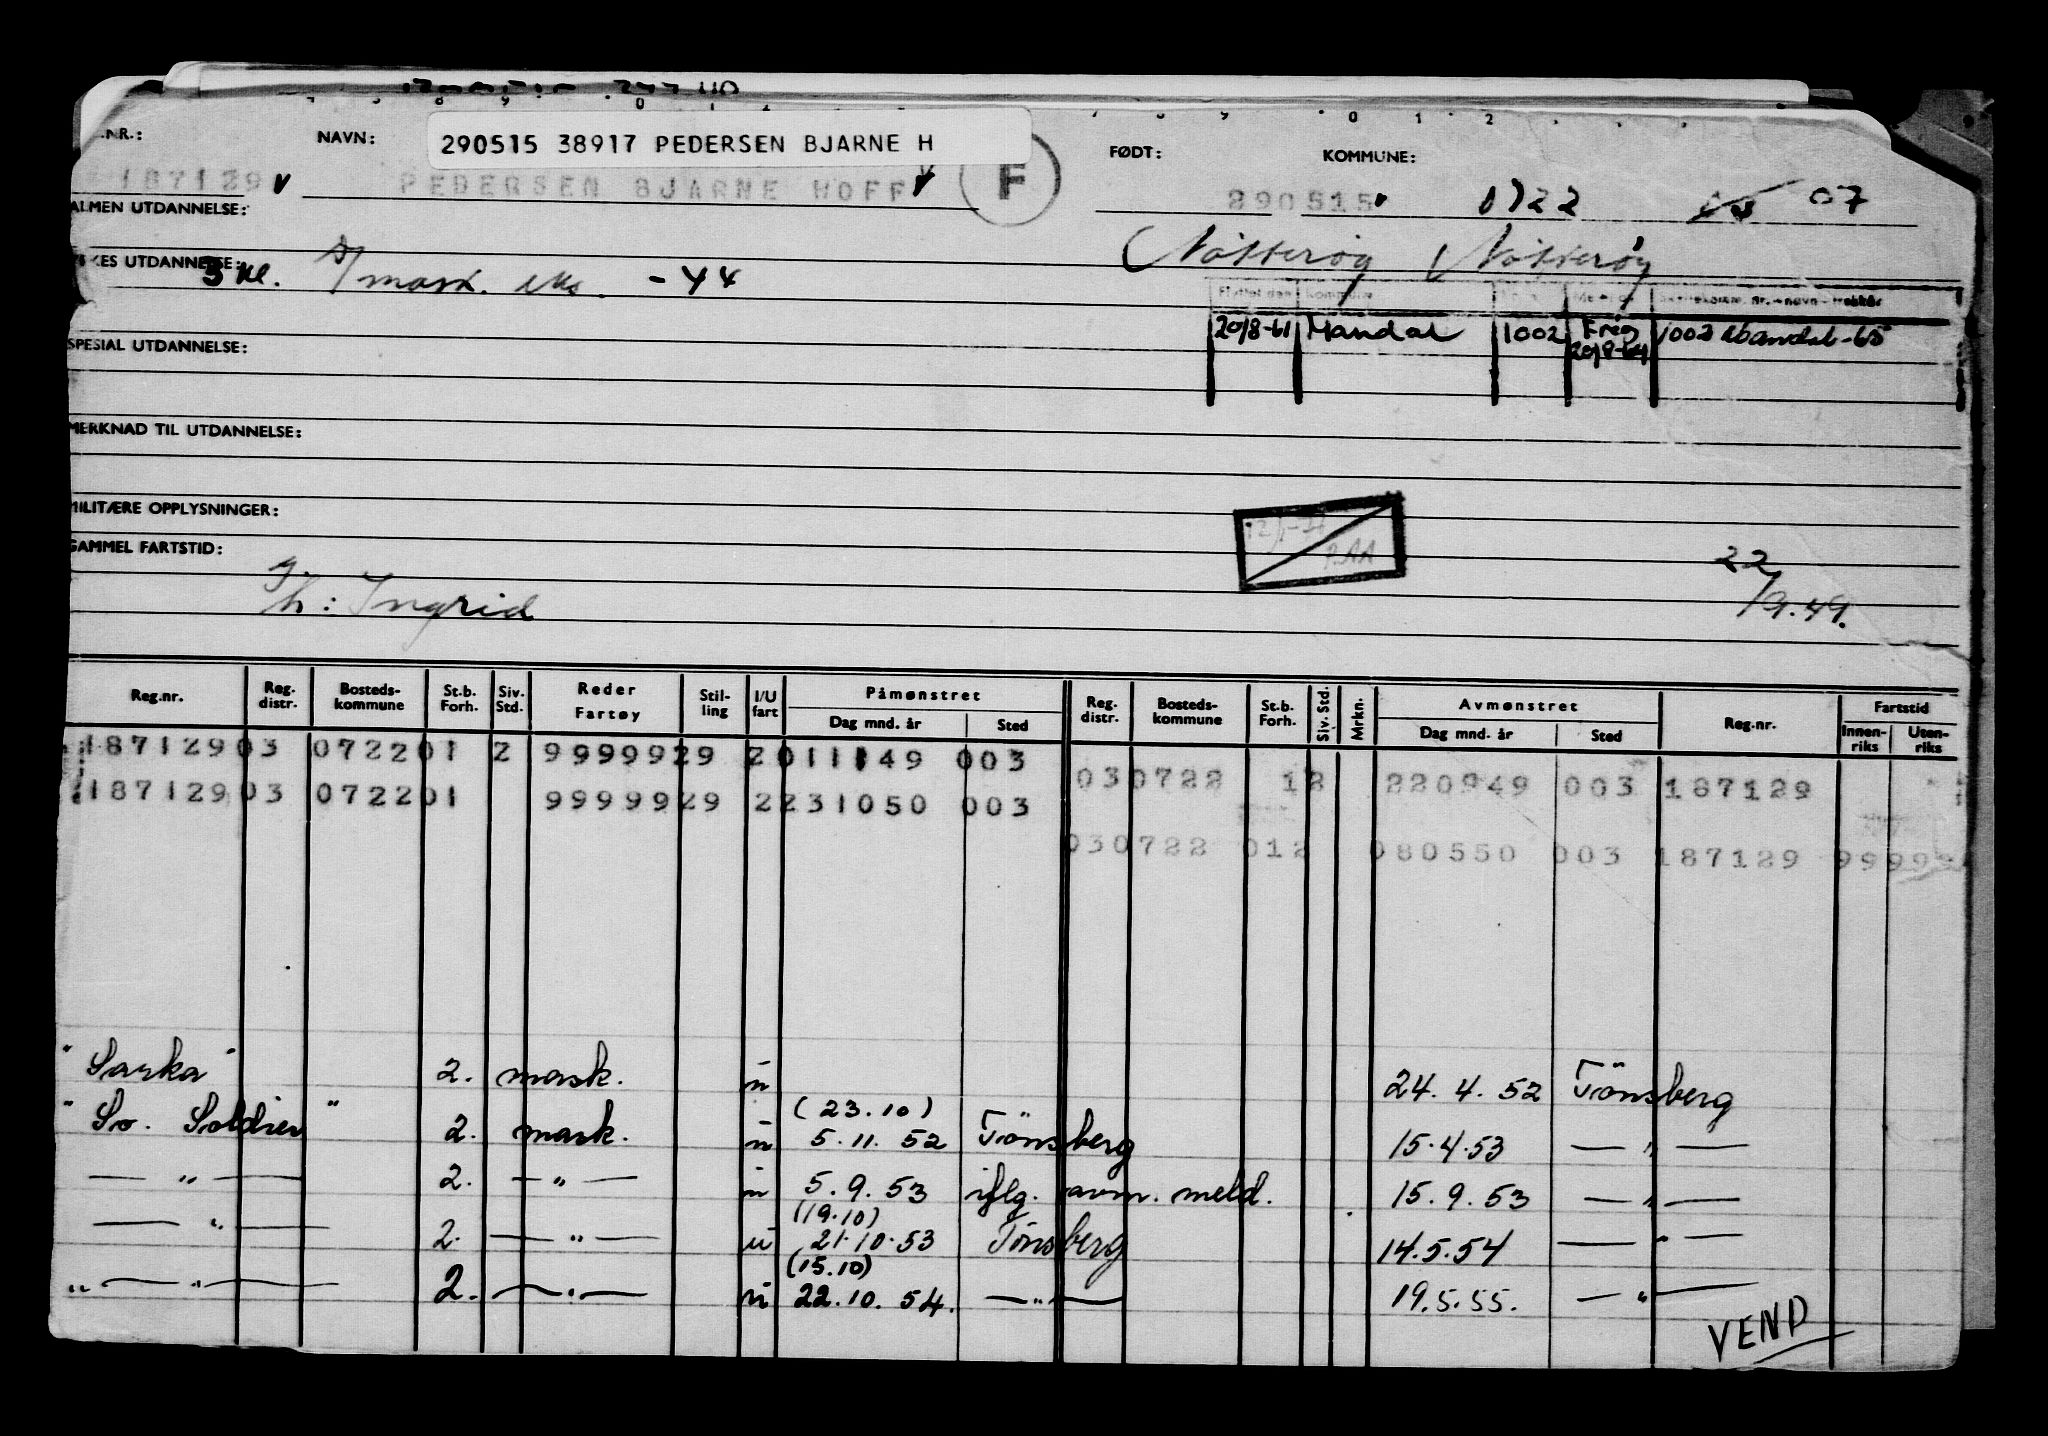 .NR.: NAVN: 290515 38917 PEDERSEN BJARNE H FØDT: KOMMUNE:
187129 PEDERSEN BJARNE HOFF F 290515 0722 07
ALMEN UTDANNELSE:
Nøtterøy Nøtterøy
KES UTDANNELSE: 3 kl. mask. eks. - 44
Flyttet den Kommune
20/8-61 Mandal 1002 Freg 20/8-64 1002 Mandal -65
SPESIAL UTDANNELSE:
MERKNAD TIL UTDANNELSE:
MILITÆRE OPPLYSNINGER:
GAMMEL FARTSTID:
h: Ingrid 22/9.49.
Reg.nr. Reg. distr. Bosteds- kommune St.b. Forh. Siv. Std. Reder Fartøy Stil- ling I/U fart Påmønstret Dag mnd. år Sted Reg. distr. Bosteds- kommune St.b. Forh. Siv. Std. Mrkn. Avmønstret Dag mnd. år Sted Reg.nr. Fartstid Innen- riks Uten- riks
187129 03 0722 01 2 99999 29 2 011149 003
03 0722 12 220949 003 187129
187129 03 0722 01 99999 29 2 231050 003
03 0722 012 080550 003 187129 9999
"Sarka" 2. mask. u 24. 4. 52 Tönsberg
"So. Soldier" 2. mask. u (23.10) 5. 11. 52 Tönsberg 15.4.53 — " —
— " — 2. — " — u 5. 9. 53 iflg. avm. meld. 15. 9. 53 — " —
— " — 2. — " — u (19.10) 21.10.53 Tönsberg 14.5.54 — " —
— " — 2. — " — u (15.10) 22.10.54. — " — 19.5.55. — " —
VEND